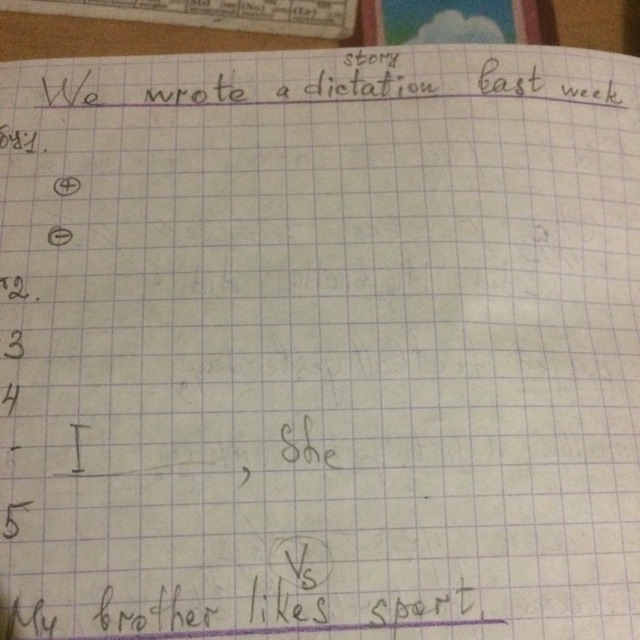 story
We wrote a dictation last week
1.
+
-
2.
3
4
- I , She
5
Vs
My brother likes sport.